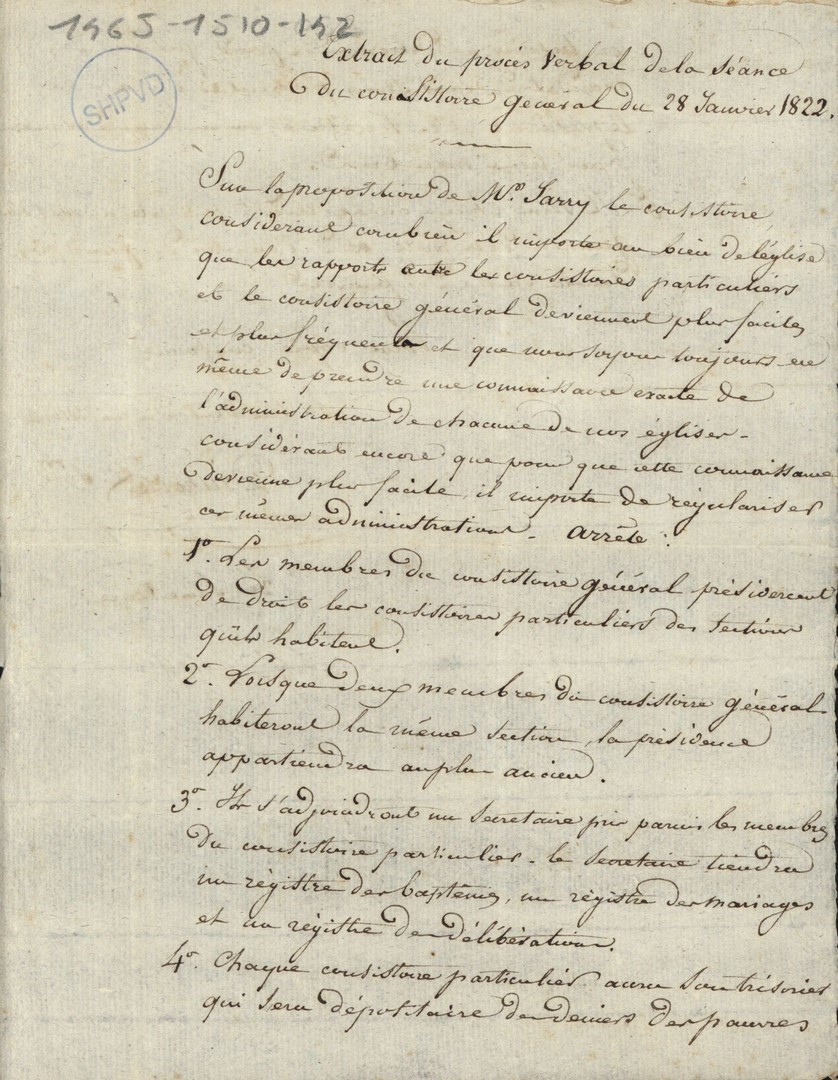 1965-1510-192
SHPVD
Extrait du procès Verbal de la séance
du consistoire général du 28 Janvier 1822.
Sur la proposition de Mr. Sarry le consistoire
considerant combien il importe au bien de l'église
que les rapports entre les consistoires particuliers
et le consistoire général deviennent plus faciles
et plus fréquents et que nous soyons toujours en
même de prendre une connaissance exacte de
l'administration de chacune de nos églises -
considérant encore que pour que cette connaissance
devienne plus facile, il importe de régulariser
ces mêmes administrations - Arrête :
1o. Les membres du consistoire général présideront
de droit les consistoires particuliers des sections
qu'ils habitent.
2o. Lorsque deux membres du consistoire général
habiteront la même section, la présidence
appartiendra au plus ancien.
3o. Ils s'adjoindront un secretaire pris parmi les membres
du consistoire particulier - le secretaire tiendra
un régistre des baptêmes, un régistre des mariages
et un régistre de délibérations.
4o. Chaque consistoire particulier aura son trésorier
qui sera dépositaire des deniers des pauvres